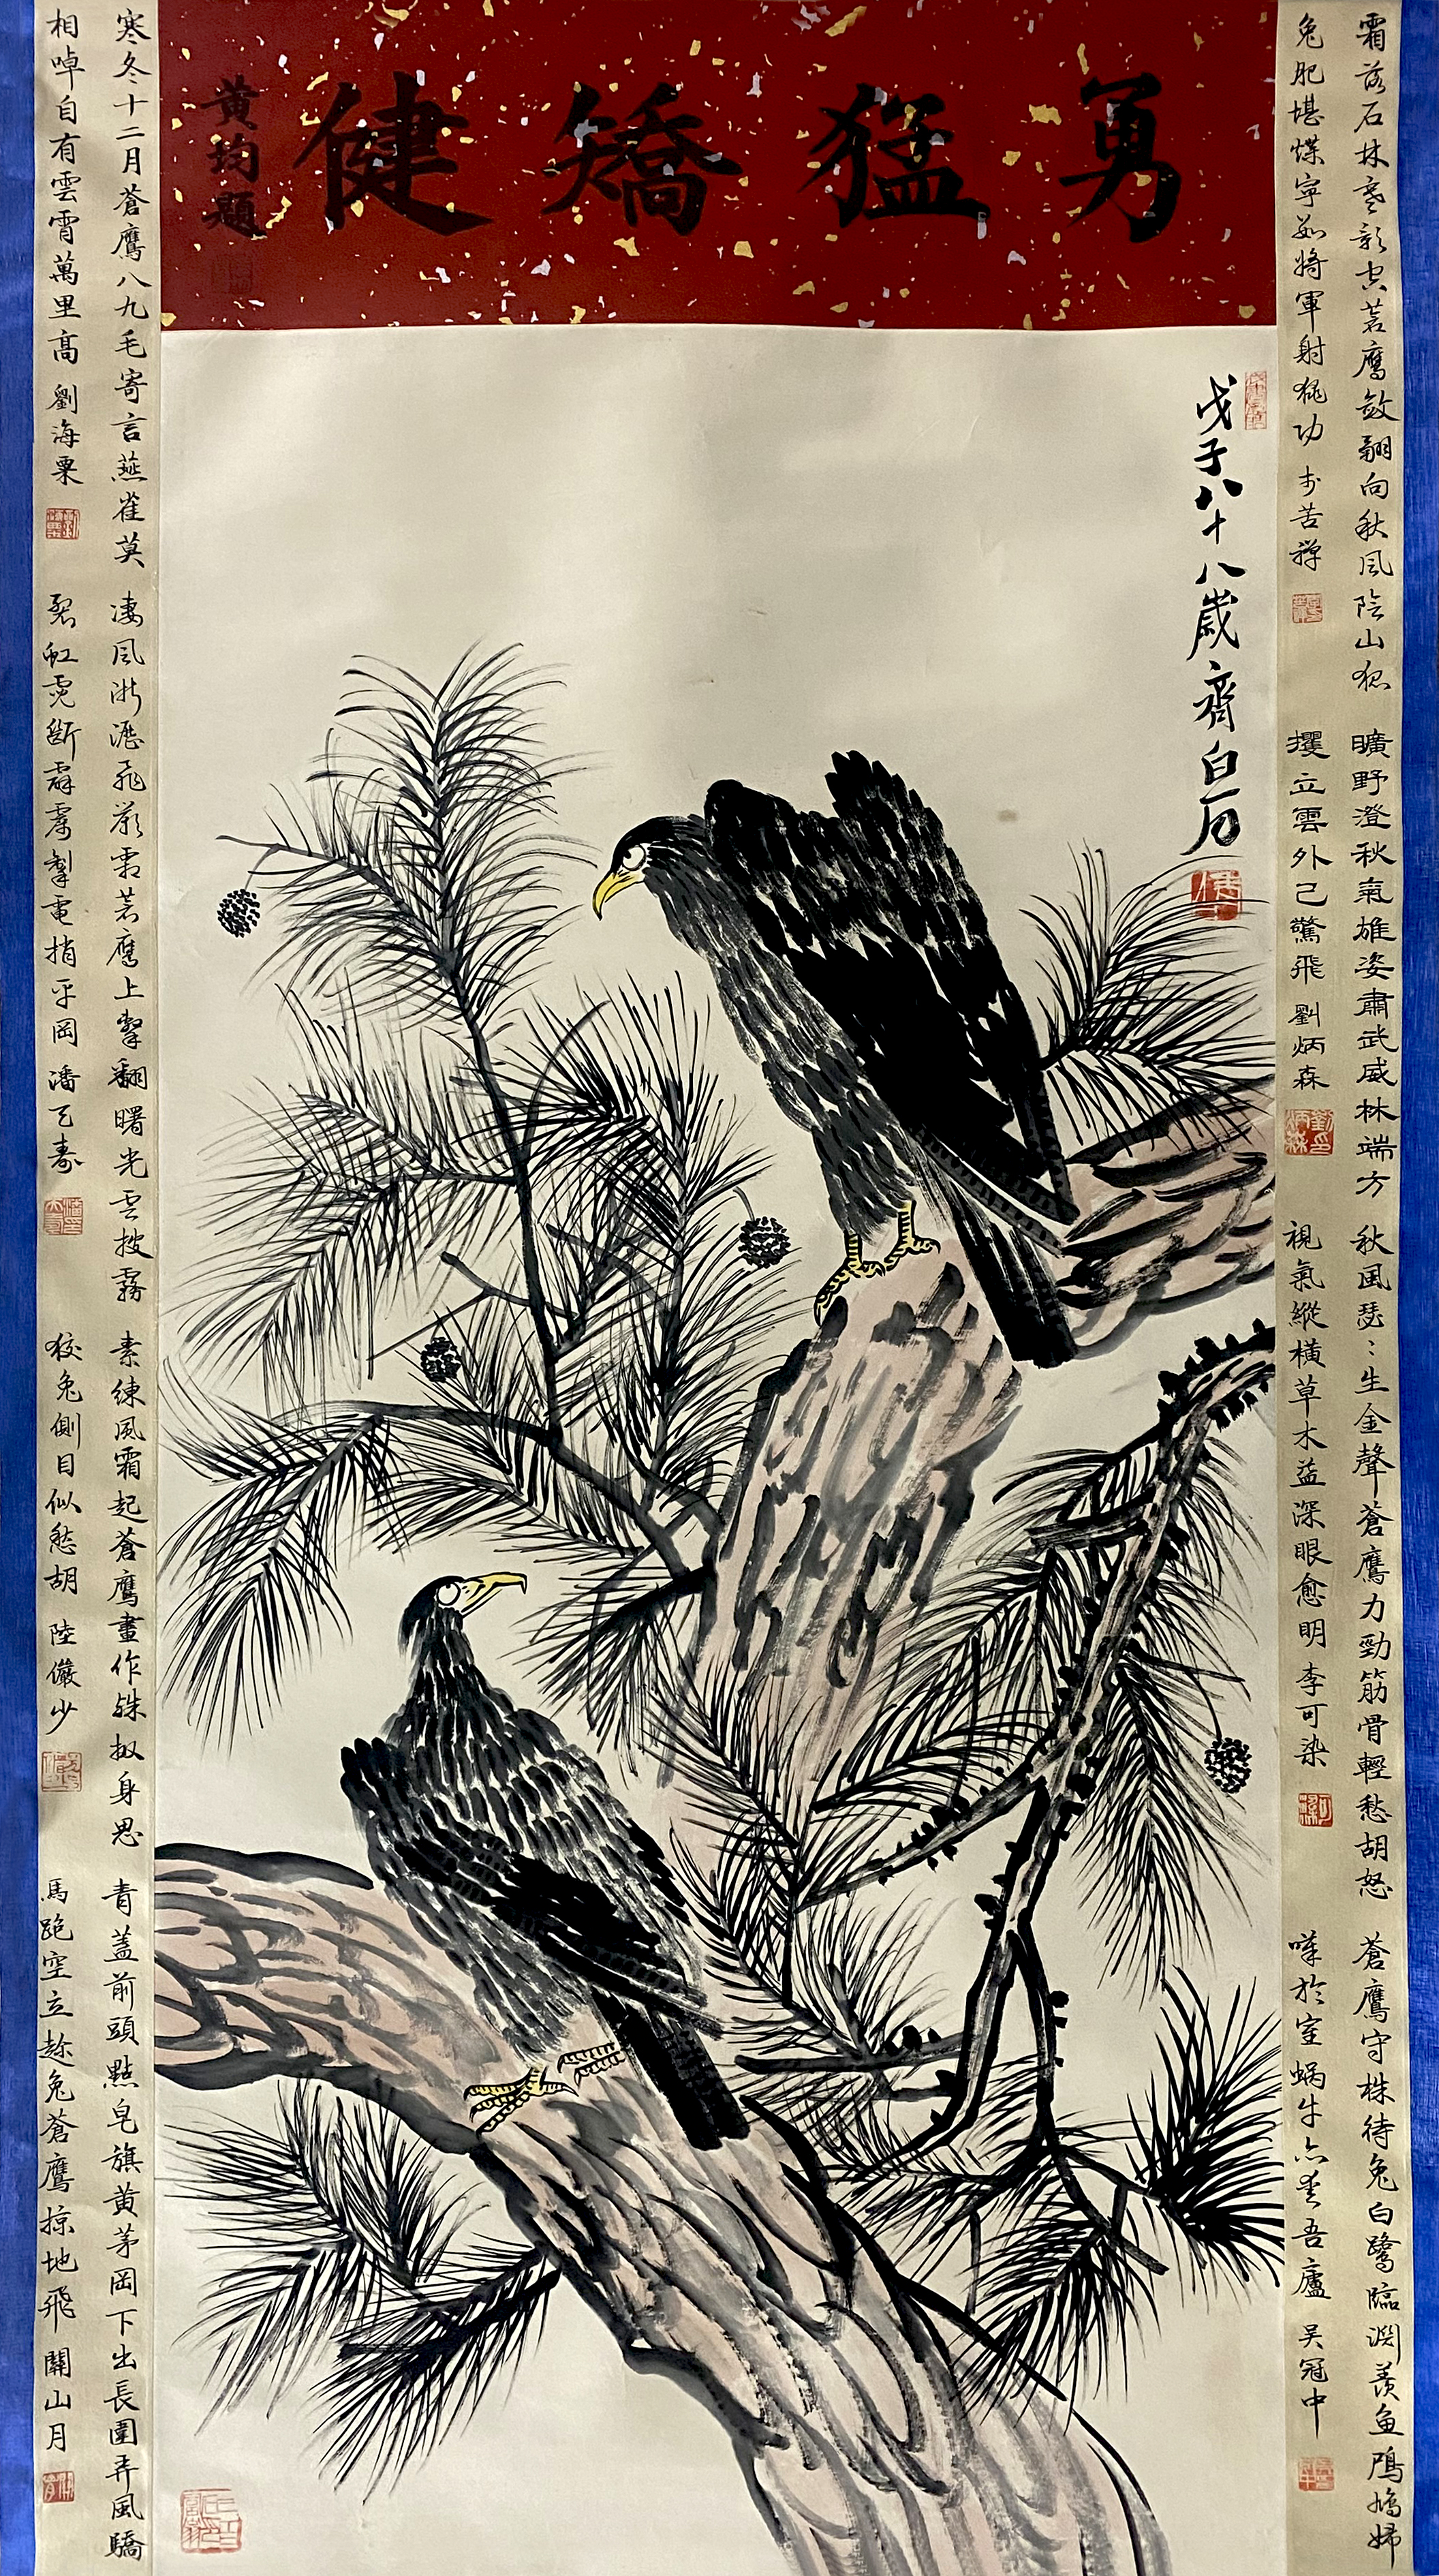 勇猛矯健
黃均題
戊子八十八歲齊白石
霜落石林寒影空蒼鷹斂翮向秋風陰山狐
兔肥堪煤寧如將軍射猊功 李苦禪
曠野澄秋氣雄姿肅武威林端方
攫立雲外已驚飛 劉炳森
秋風瑟々生金聲蒼鷹力勁筋骨輕愁胡怒
視氣縱橫草木益深眼愈明 李可染
蒼鷹守株待兔白鷺臨淵羨魚鳲鳩婦
嘆於室蝸牛亦愛吾廬 吳冠中
寒冬十二月蒼鷹八九毛寄言燕雀莫
相啅自有雲霄萬里高 劉海粟
凄風淅瀝飛嚴霜蒼鷹上擊翻曙光雲披霧
裂虹霓斷霹靂掣電捎平岡 潘天壽
素練風霜起蒼鷹畫作殊㧐身思
狡兔側目似愁胡 陸儼少
青蓋前頭點皂旗黃茅岡下出長圍弄風驕
馬跑空立趁兔蒼鷹掠地飛 關山月